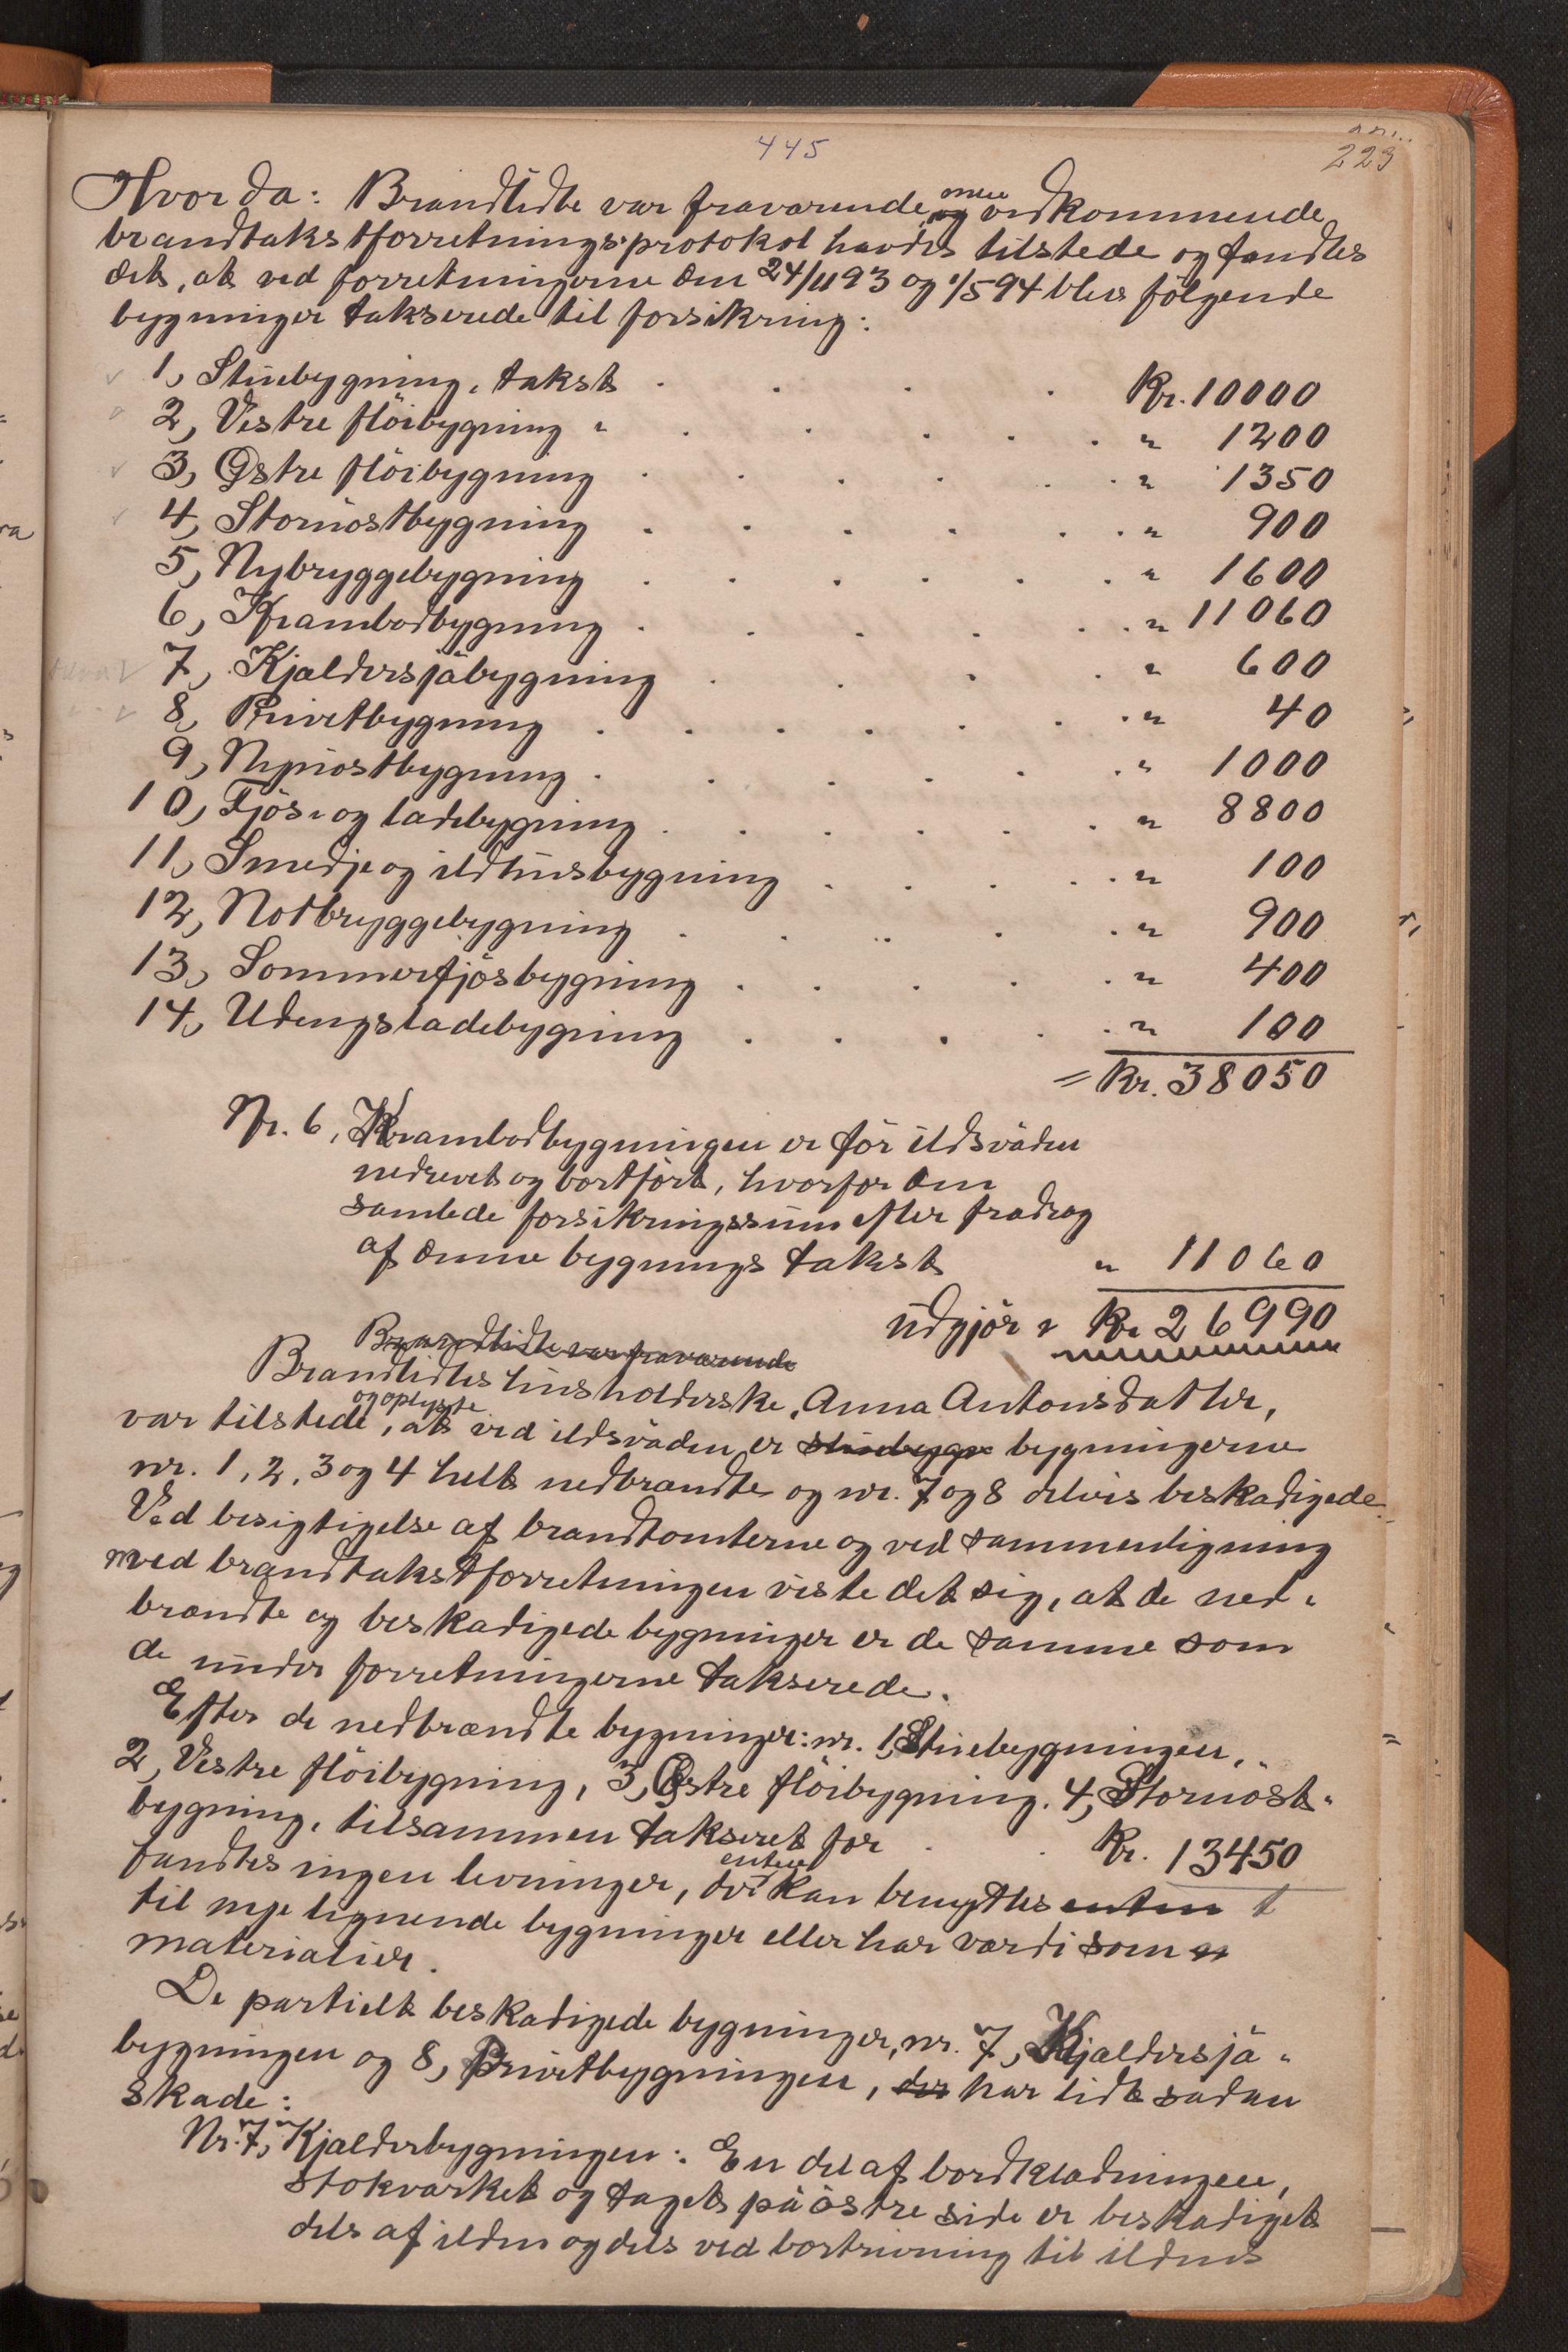 445
223
Hvorda: Brandlidte var fraværende, men vedkommende
brandtakstforretningsprotokol havdes tilstede og fandtes
det, at ved forretningerne den 24/11 93 og 1/5 94 blev følgende
bygninger takserede til forsikring:
1, Stuebygning, takst . . . . Kr. 10000
2, Vestre flöibygning " . . . . . . " 1200
3, Østre flöibygning . . . . . . " 1350
4, Stornöstbygning . . . . . . " 900
5, Nybryggebygning . . . . . . " 1600
6, Krambodbygning . . . . . . " 11060
7, Kjældersjåbygning . . . . " 600
8, Privetbygning . . . . . . . " 40
9, Nynöstbygning . . . . . . " 1000
10, Fjös- og ladebygning . . . . . . " 8800
11, Smedje og ildhusbygning . . . . . " 100
12, Notbryggebygning . . . . . " 900
13, Sommerfjösbygning . . . . . " 400
14, Udengsladebygning . . . . . " 100
= Kr. 38050
Nr. 6, Krambodbygningen er för ildsvåden
nedrevet og bortfört, hvorfor den
samlede forsikringssum efter fradrag
af denne bygnings takst " 11060
udgjör " Kr. 26990
Brandlidte var fraværende
Brandlidtes husholderske, Anna Antonsdatter,
var tilstede, og oplyste, at ved ildsvåden er stuebygn bygningerne
nr. 1, 2, 3 og 4 helt nedbrændte og nr. 7 og 8 delvis beskadigede.
Ved besigtigelse af brandtomterne og ved sammenligning
med brandtakstforretningen viste det sig, at de ned-
brændte og beskadigede bygninger er de samme som
de under forretningerne takserede.
Efter de nedbrændte bygninger: nr. 1, Stuebygningen,
2, Vestre flöibygning, 3, Østre flöibygning, 4, Stornöst-
bygning, tilsammen takseret for . . Kr. 13450
fandtes ingen levninger, der enten kan benyttes enten
til nye lignende bygninger eller har værdi som
materialier.
De partielt beskadigede bygninger, nr. 7, Kjældersjå-
bygningen og 8, Privetbygningen, der har lidt sådan
skade:
Nr. 7, Kjælderbygningen: En del af bordklædningen,
stokværket og taget på östre side er beskadiget
dels af ilden og dels ved bortrivning til ildens